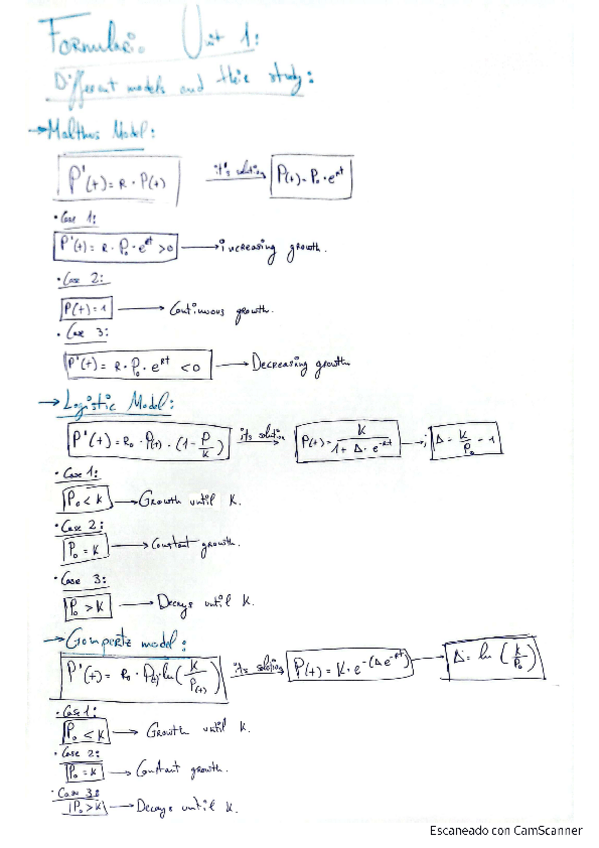 Formulae. Unit 1:
Different models and their study:
→ Malthus Model:
P'(t) = R · P(t) it's solution P(t) = P₀ · e^Rt
· Case 1:
P'(t) = R · P₀ · e^Rt > 0 → increasing growth.
· Case 2:
P(t) = 1 → Continuous growth.
· Case 3:
P'(t) = R · P₀ · e^Rt < 0 → Decreasing growth
→ Logistic Model:
P'(t) = R₀ · P(t) · (1 - P/K) its solution → P(t) = K / (1 + Δ · e^-Rt) → ; Δ = K/P₀ - 1
· Case 1:
P₀ < K → Growth until K.
· Case 2:
P₀ = K → Constant growth.
· Case 3:
P₀ > K → Decays until K.
→ Gompertz model:
P'(t) = R₀ · P(t) · ln(K/P(t)) its solution → P(t) = K · e^-(Δe^-Rt) → Δ = ln(K/P₀)
· Case 1:
P₀ < K → Growth until K.
· Case 2:
P₀ = K → Constant growth.
· Case 3:
P₀ > K → Decays until K.
Escaneado con CamScanner